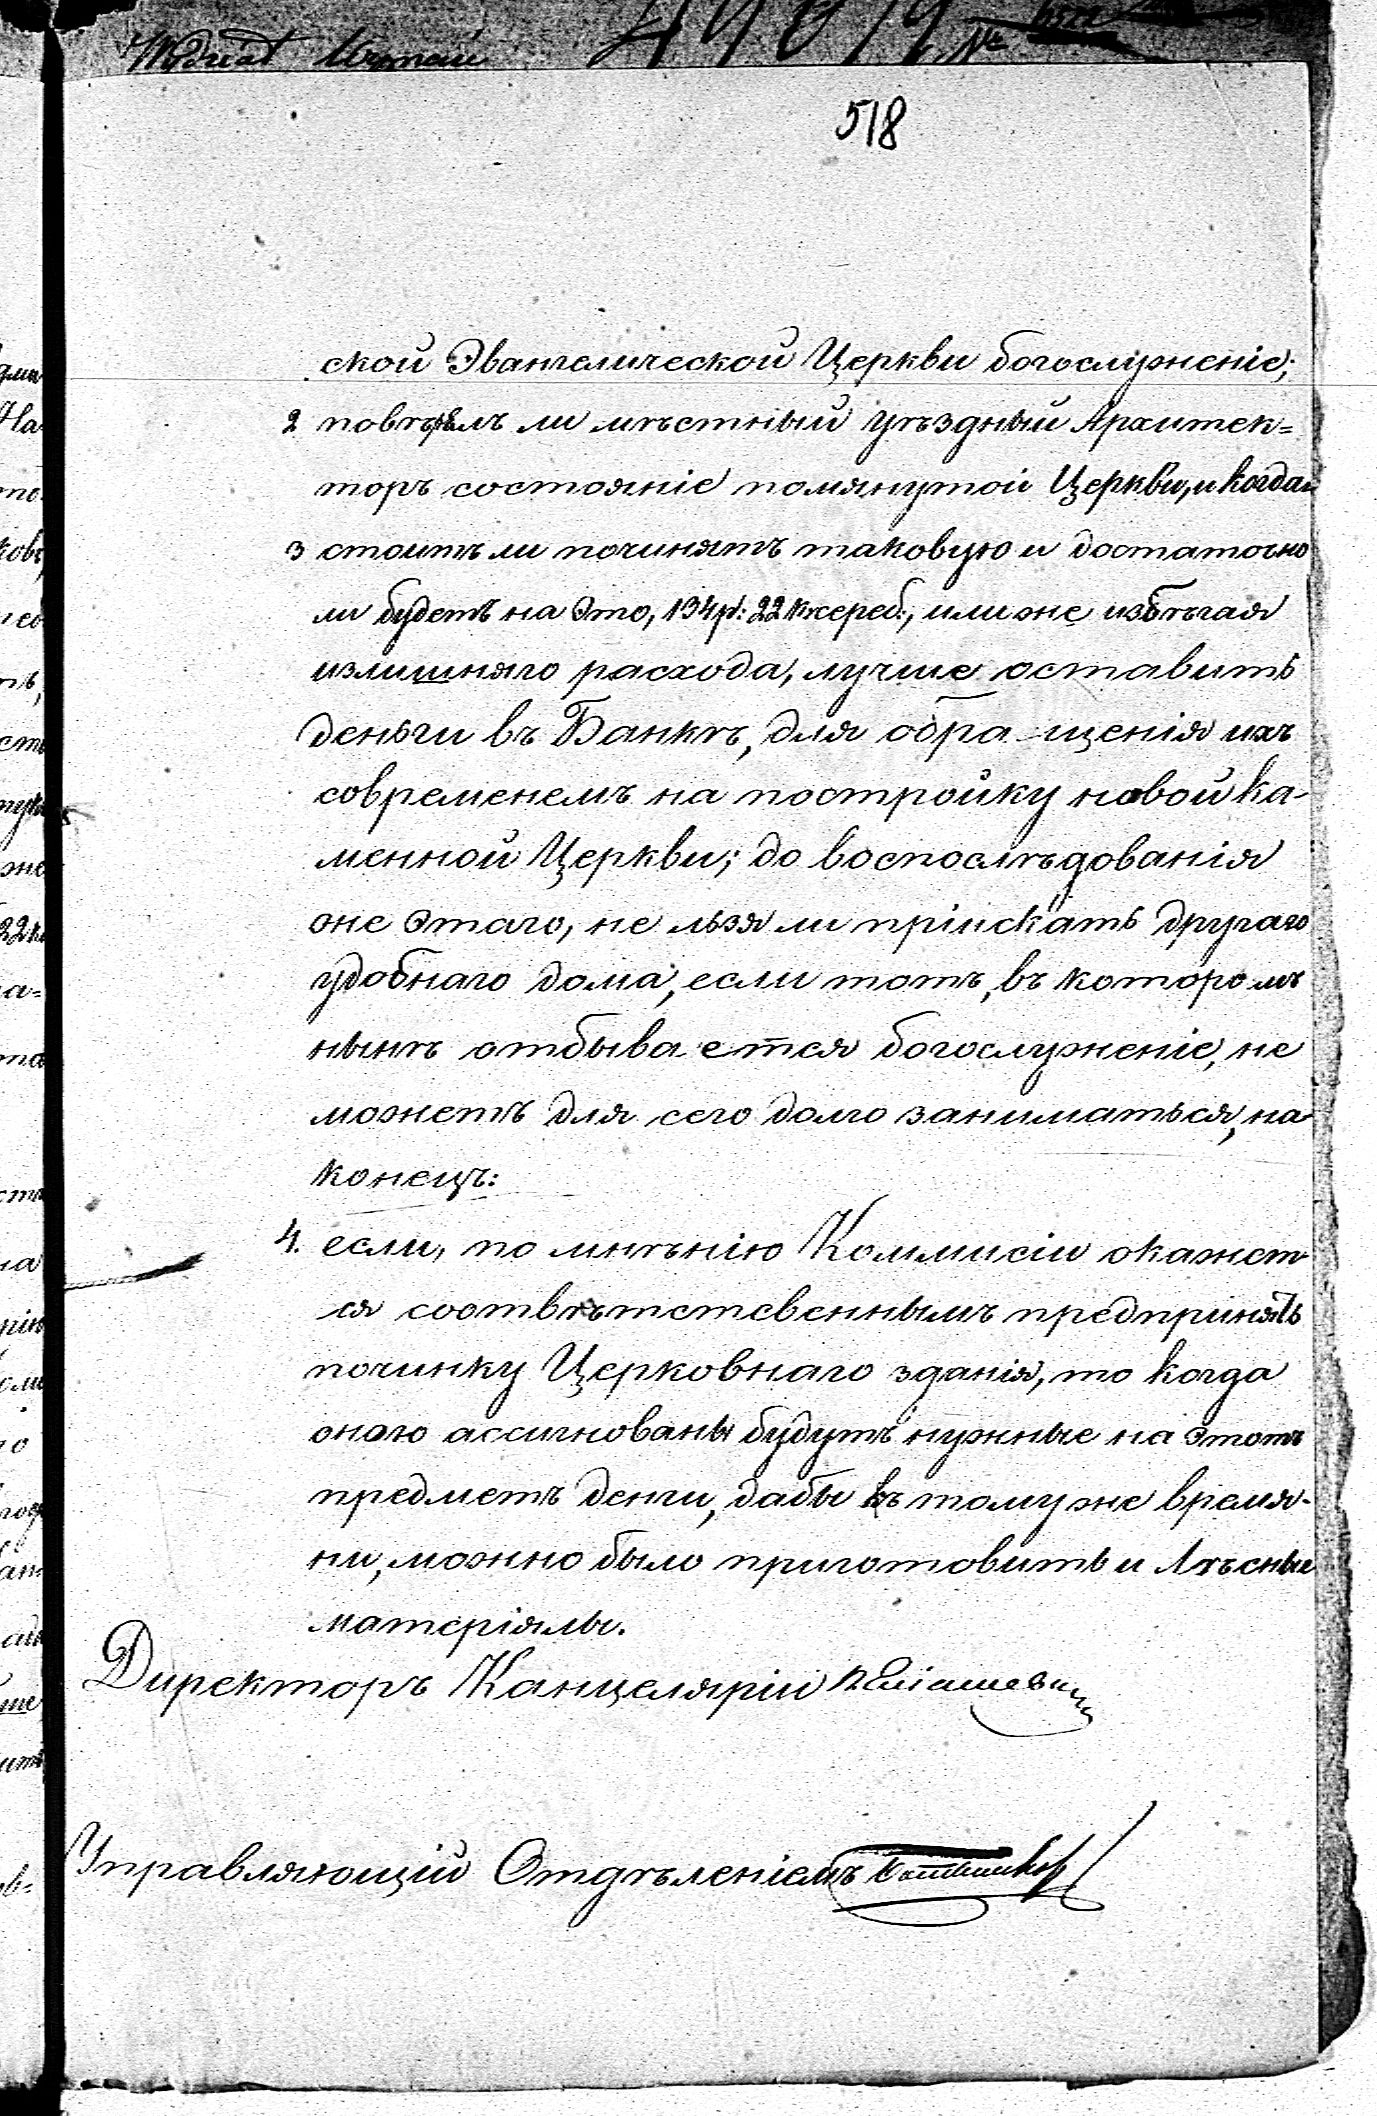 518
ской Эвангелической Церкви богослуженіе;
2 повѣрялъ ли мѣстный уѣздный Архитек=
торъ состояніе помянутой Церкви, и когда;
3 стоитъ ли починять таковую и достаточно
ли будетъ на это, 134 р: 22 к сереб:, или же избѣгая
излишняго расхода, лучше оставить
деньги въ Банкѣ, для обращенія ихъ
современемъ на постройку новой ка-
менной Церкви; до воспослѣдованія
же этаго, не льзя ли пріискать другаго
удобнаго дома, если тотъ, въ которомъ
нынѣ отбывается богослуженіе, не
можетъ для сего долго заниматься, на
конецъ:
4. если, по мнѣнію Коммисіи окажет
ся соотвѣтственнымъ предпринять
починку Церковнаго зданія, то когда
оною ассигнованы будутъ нужные на этотъ
предметъ денги, дабы къ тому же время-
ни, можно было приготовить и Лѣсные
матеріялы.
Директоръ Канцеляріи
Управляющій Отдѣленіемъ